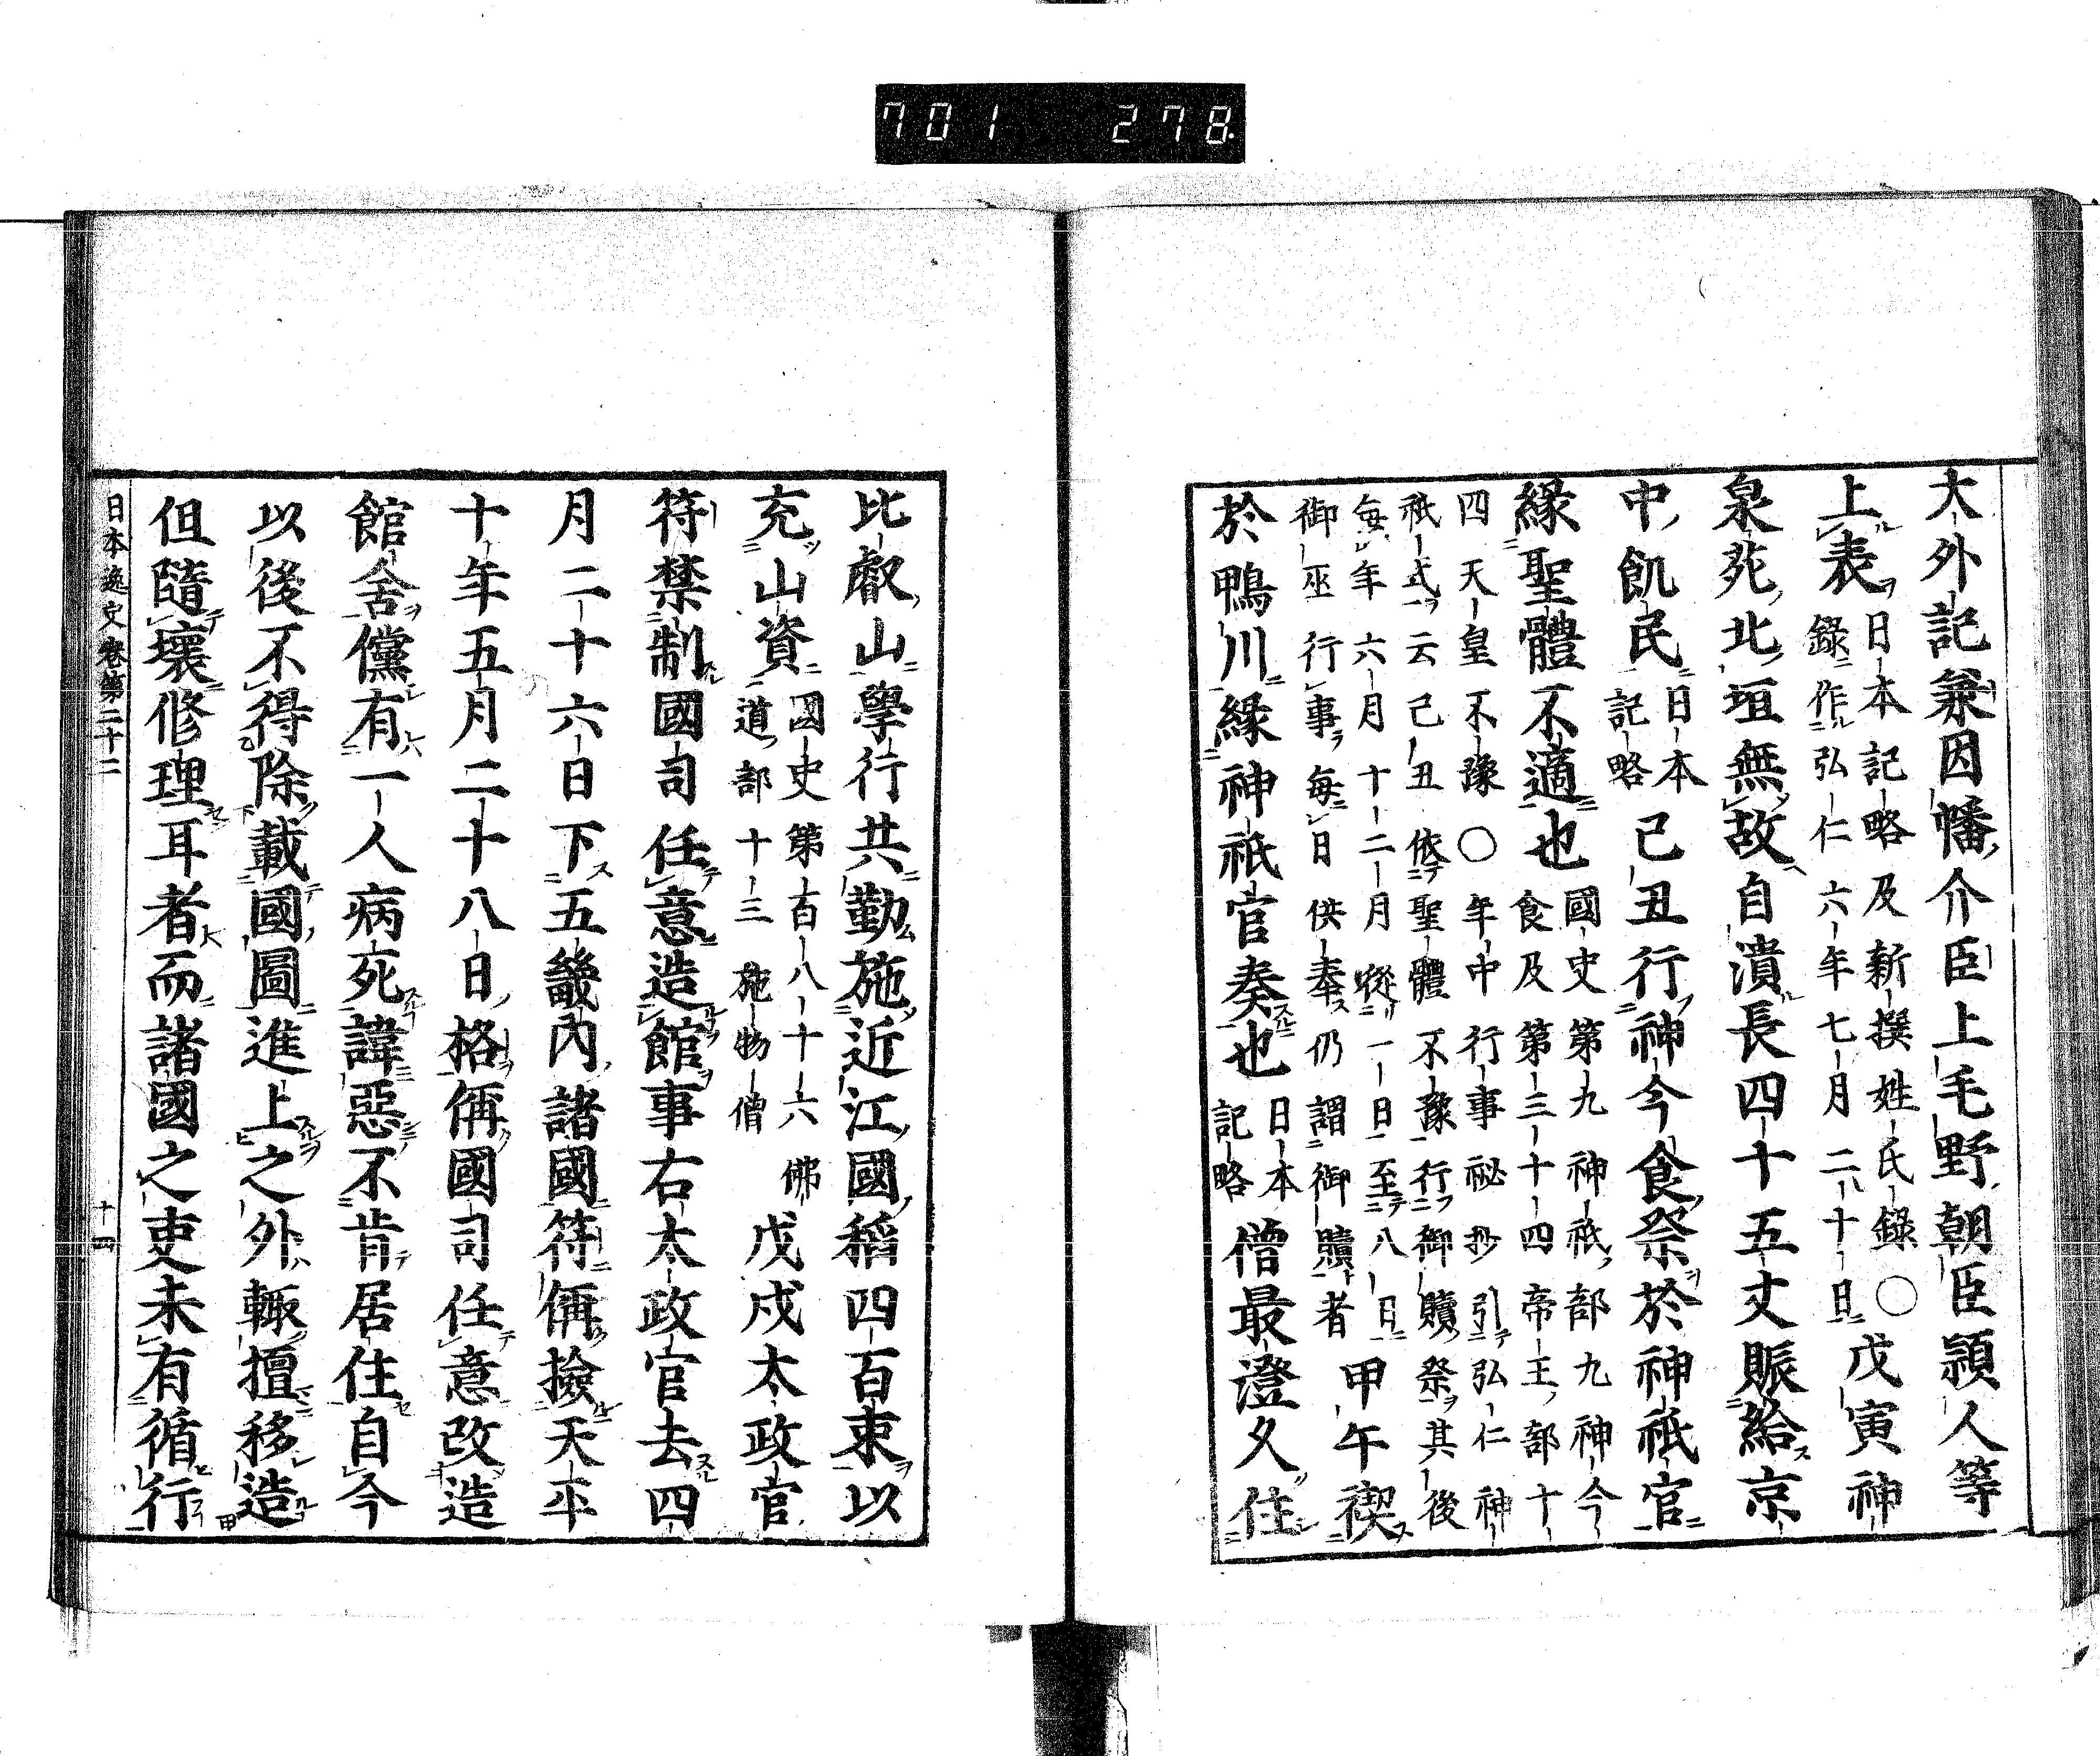 701 278
大外記兼因幡介臣上毛野朝臣頴人等
上表日本記略及新撰姓氏録○
録作弘仁六年七月二十日戊寅神
泉苑北垣無故自潰長四十五丈賑給京
中飢民日本
記略己丑行神今食祭於神祇官
縁聖體不適也國史第九神祇部九神今
食及第三十四帝王部十
四天皇不豫○年中行事祕抄引弘仁神
祇式云己丑依聖體不豫行御贖祭其後
毎年六月十二月從一日至八日
御巫行事毎日供奉仍謂御贖者甲午禊
於鴨川縁神祇官奏也日本
記略僧最澄久住
比叡山學行共勤施近江國稻四百束以
充山資國史第百八十六佛
道部十三施物僧戊戌太政官
符禁制國司任意造館事右太政官去四
月二十六日下五畿内諸國符偁撿天平
十年五月二十八日格偁國司任意改造
館舍儻有一人病死諱惡不肯居住自今
以後不得除載國圖進上之外輙擅移造
但隨壞修理耳者而諸國之吏未有循行
日本逸史卷第二十二 十四